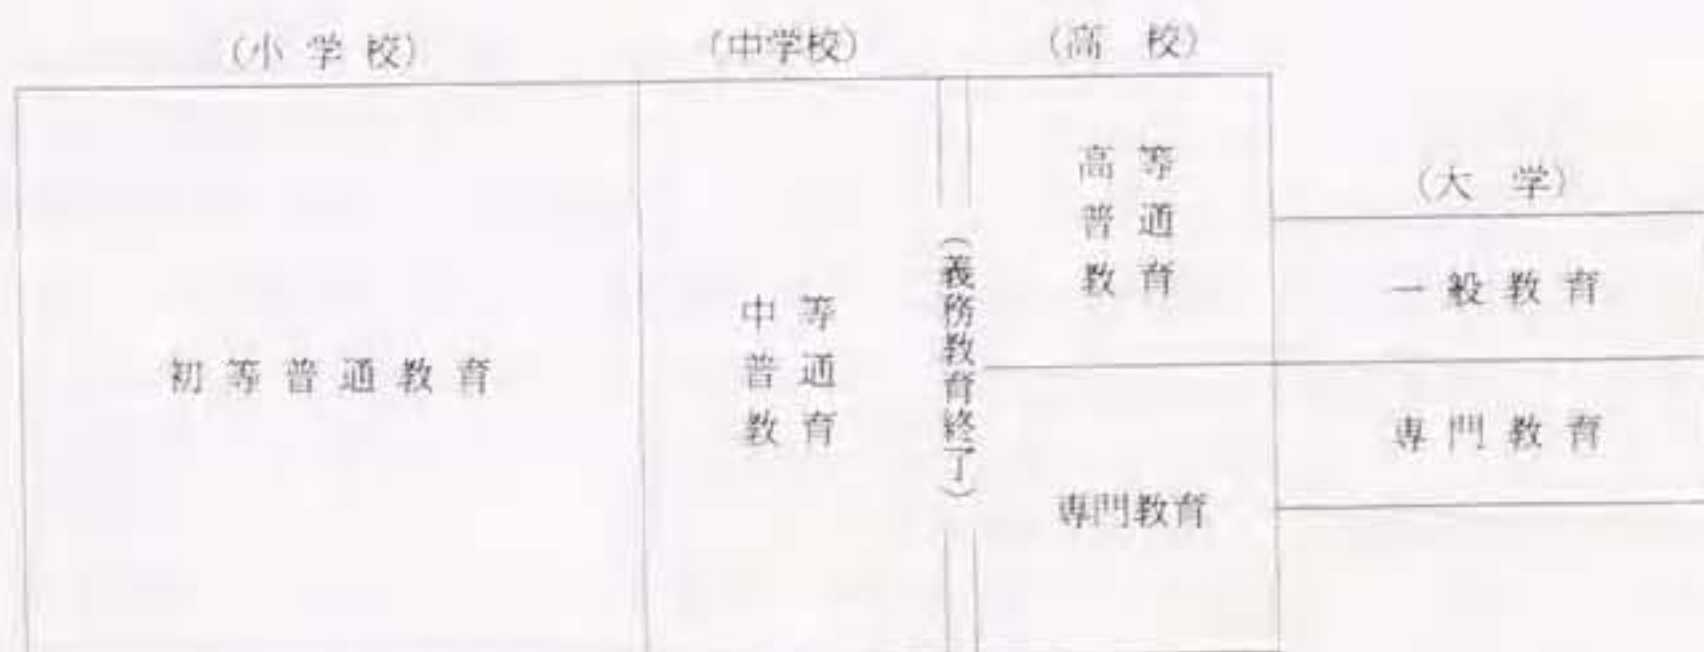 (小学校)
(中学校)
(高　校)
(大　学)
初等普通教育
中等
普通
教育
(義務教育終了)
高等
普通
教育
専門教育
一般教育
専門教育